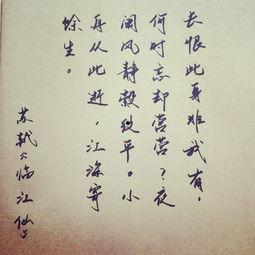 长恨此身非我有，
何时忘却营营？夜
阑风静縠纹平。小
舟从此逝，江海寄
馀生。
苏轼《临江仙》